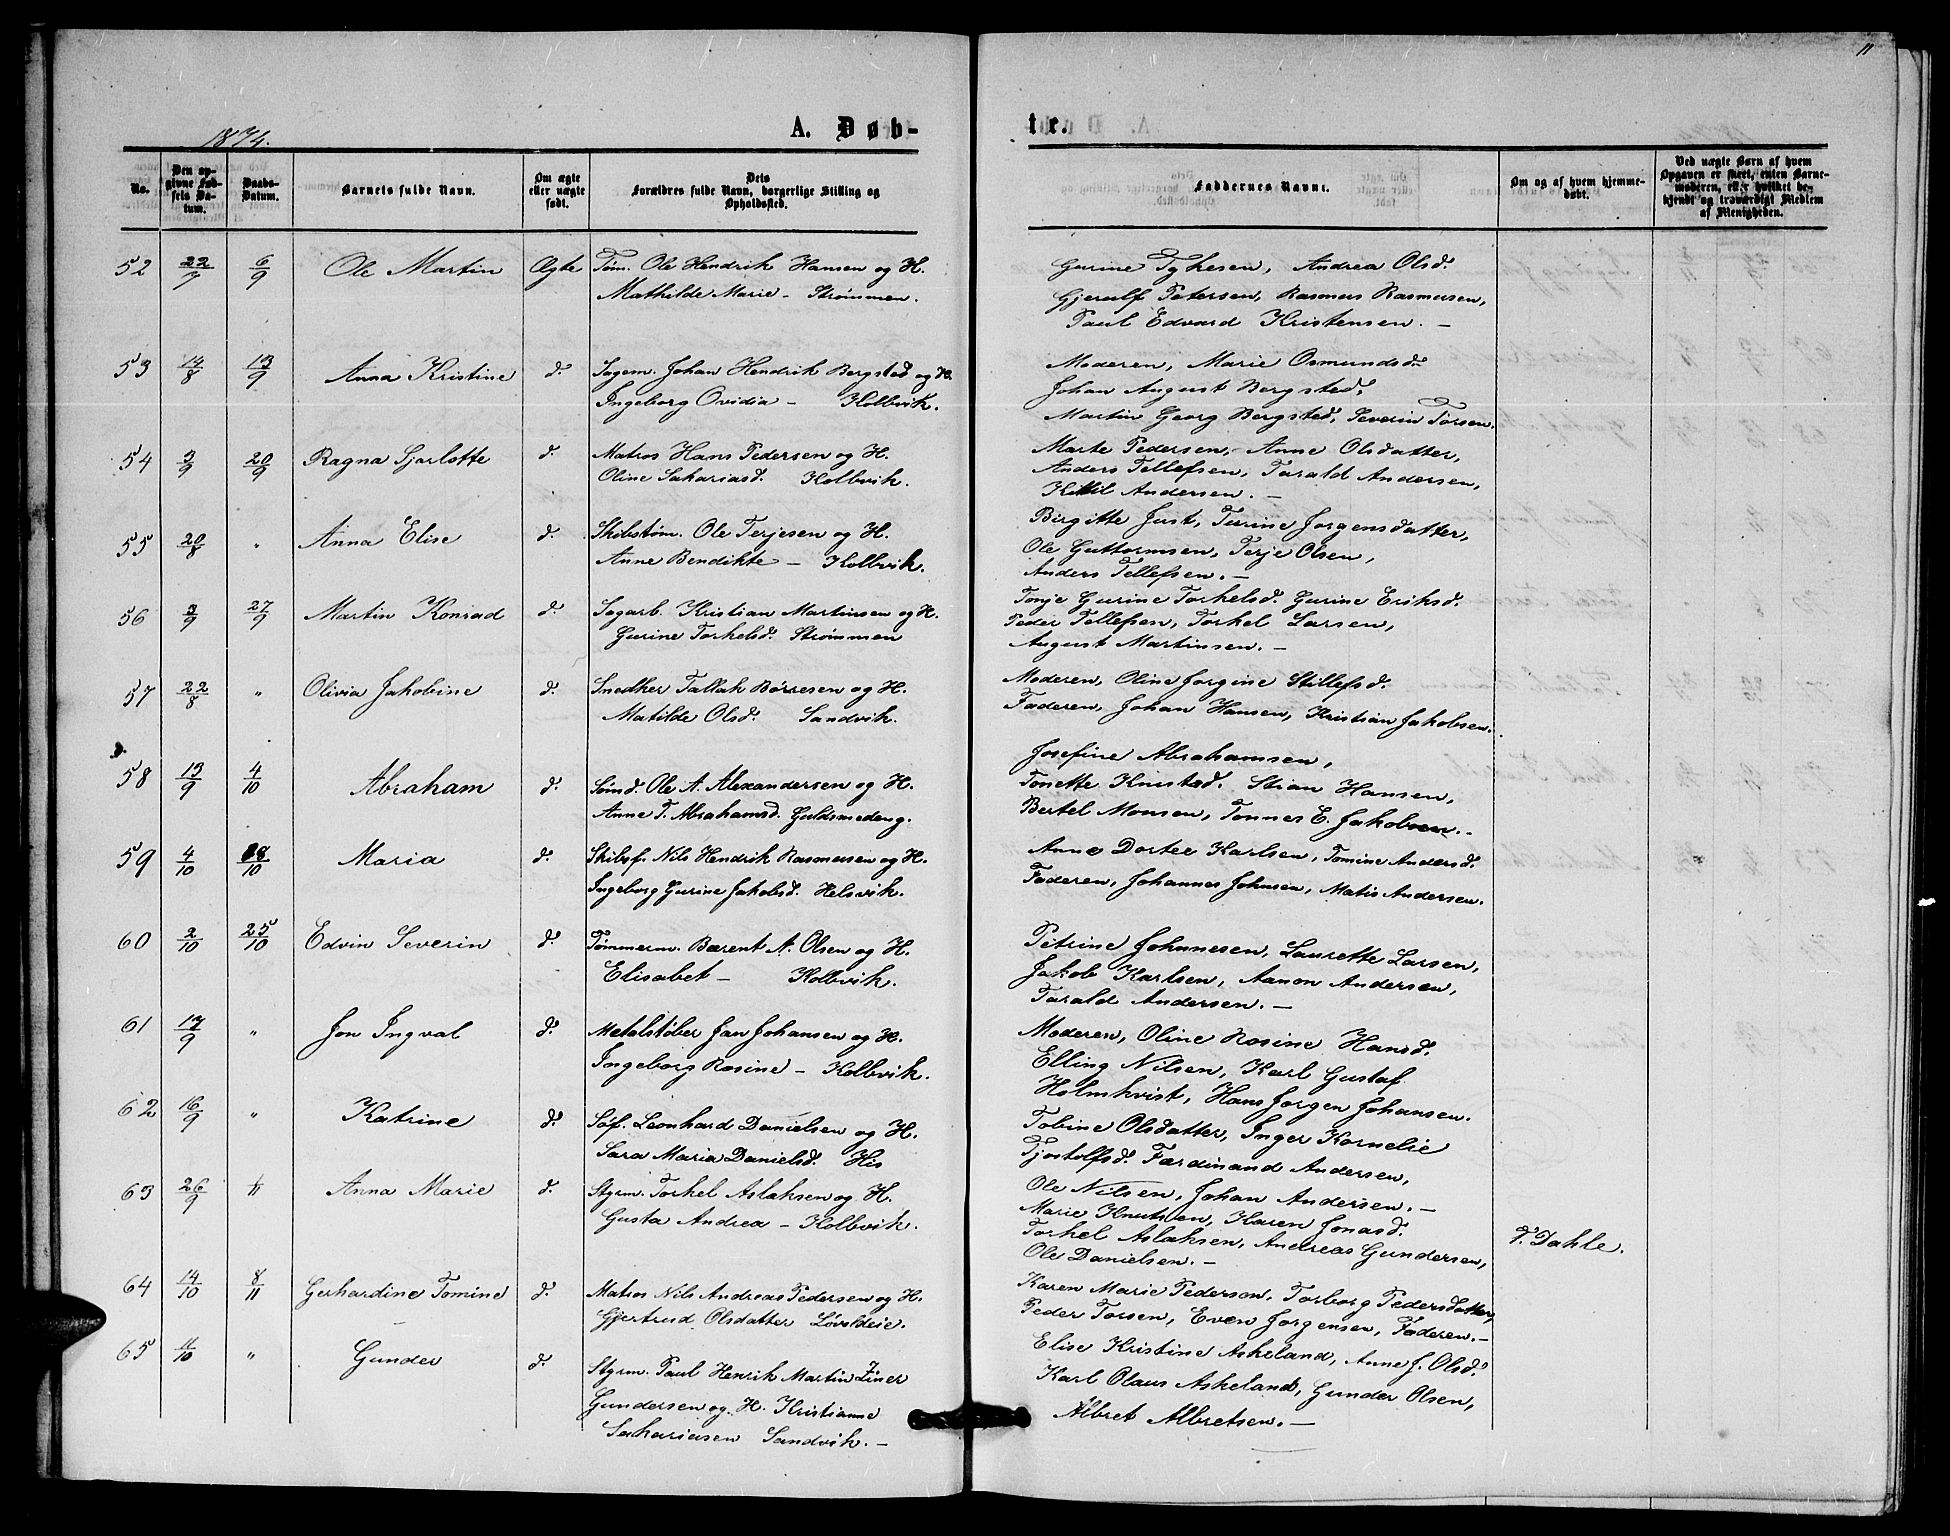 11
1874.
A. Døb-
te.
No.
Den op-
givne Fød-
sels Da-
tum.
Daabs-
Datum.
Barnets fulde Navn.
Om ægte
eller uægte
født.
Dets
Forældres fulde Navn, borgerlige Stilling og
Opholdssted.
Faddernes Navne.
Om og af hvem hjemme-
døbt.
Ved uægte Børn af hvem
Opgaven er skeet, enten Barne-
moderen, eller hvilket be-
kjendt og troværdigt Medlem
af Menigheden.
52 22/7 6/9 Ole Martin Ægte Tøm. Ole Hendrik Hansen og H.
Mathilde Marie - Strømmen.
Gurine Tykesen, Andrea Olsd.
Gjerulf Petersen, Rasmus Rasmusen,
Paul Edvard Kristensen. -
53 14/8 13/9 Anna Kristine d. Sagem. Johan Hendrik Bergsted og H.
Ingeborg Ovidia - Kolbvik.
Moderen, Marie Osmundsd.
Johan August Bergsted,
Martin Georg Bergsted, Severin Torsen.
54 3/9 20/9 Ragna Sjarlotte d. Matros Hans Pedersen og H.
Oline Sakariasd. Kolbvik.
Marte Pedersen, Anne Olsdatter,
Anders Tellefsen, Tarald Andersen,
Kittil Andersen. -
55 20/8 " Anna Elise d. Skibstøm. Ole Terjesen og H.
Anne Bendikte - Kolbvik.
Birgitte Just, Turine Jorgensdatter,
Ole Guttormsen, Terje Olsen,
Anders Tellefsen. -
56 3/9 27/9 Martin Konrad d. Sagarb. Kristian Martinsen og H.
Gurine Torkelsd. Strømmen
Tonje Gurine Torkelsd. Gurine Eriksd.
Peder Tellefsen, Torkel Larsen,
August Martinsen. -
57 22/8 " Olivia Jakobine d. Snedker Tallak Børresen og H.
Matilde Olsd. Sandvik.
Moderen, Oline Jorgine Stillefsd.
Faderen, Johan Hansen, Kristian Jakobsen.
58 13/9 4/10 Abraham d. Smed. Ole A. Alexandersen og H.
Anne T. Abrahamsd. Guldsmedeng.
Josefine Abrahamsen,
Tonette Knutsd. Stian Hansen,
Bertel Monsen, Tonnes E. Jakobsen.
59 4/10 18/10 Maria d. Skibsf. Nils Hendrik Rasmusen og H.
Ingeborg Gurine Jakobsd. Helsvik.
Anne Dortee Karlsen, Tomine Andersd.
Faderen, Johannes Johnsen, Matis Andersen.
60 2/10 25/10 Edvin Severin d. Tømmerm. Bærent A. Olsen og H.
Elisabet - Kolbvik.
Petrine Johnnesen, Laurette Larsen,
Jakob Karlsen, Aanon Andersen,
Tarald Andersen. -
61 17/9 " Jon Ingval d. Metalstøber Jan Johansen og H.
Ingeborg Rosine - Kolbvik.
Moderen, Oline Rosine Hansd.
Elling Nilsen, Karl Gustaf
Holmkvist, Hans Jorgen Johansen.
62 16/9 " Katrine d. Søf. Leonhard Danielsen og H.
Sara Maria Danielsd. His
Tobine Olsdatter, Inger Kornelie
Tjostolfsd. Færdinand Andersen,
Ole Nilsen, Johan Andersen. -
63 26/9 1/11 Anna Marie d. Styrm. Torkel Aslaksen og H.
Gusta Andrea - Kolbvik.
Marie Knutsen, Karen Jonasd.
Torkel Aslaksen, Andreas Gundersen,
Ole Danielsen. -
T. Dahle.
64 14/10 8/11 Gerhardine Tomine d. Matros Nils Andreas Pedersen og H.
Gjertrud Olsdatter Løvoldeie.
Karen Marie Pederson, Torborg Pedersdatter,
Peder Torsen, Even Jorgensen, Faderen. -
65 11/10 " Gunder d. Styrm. Paul Henrik Martin Ziner
Gundersen og H. Kristianne
Sakariasen Sandvik. -
Elise Kristine Askeland, Anne J. Olsd.
Karl Olaus Askeland, Gunder Olsen,
Albret Albretsen. -